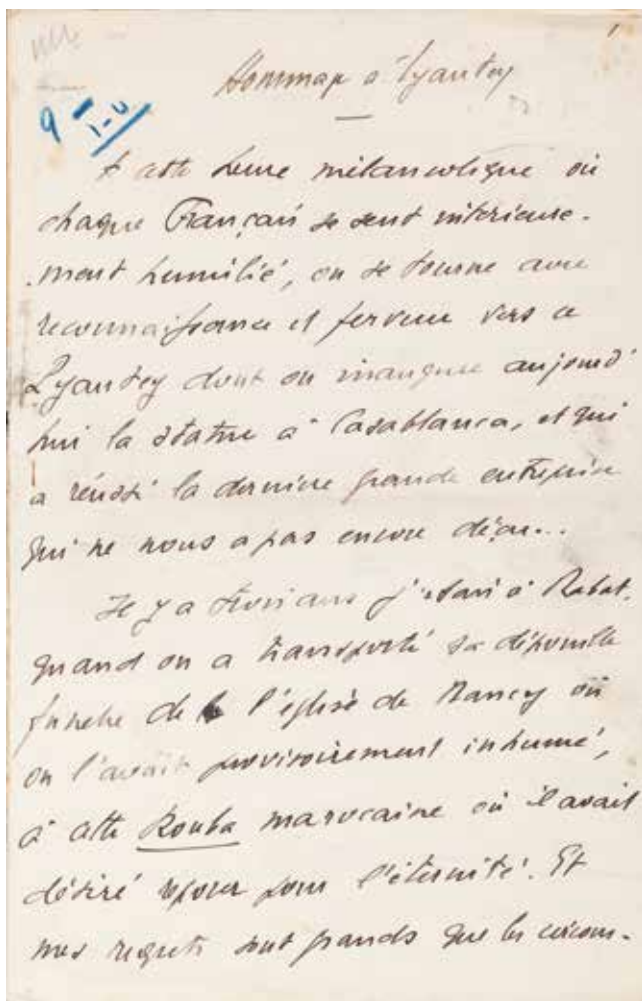 1
9
Hommage à Lyautey
A cette heure mélancolique où
chaque Français se sent intérieure-
-ment humilié, on se tourne avec
reconnaissance et ferveur vers ce
Lyautey dont on inaugure aujourd'
hui la statue à Casablanca, et qui
a réussi la dernière grande entreprise
qui ne nous a pas encore déçu...
Il y a trois ans j'étais à Rabat,
quand on a transporté sa dépouille
funèbre de l'église de Nancy où
on l'avait provisoirement inhumé,
à cette Kouba marocaine où il avait
désiré reposer pour l'éternité. Et
mes regrets sont grands que les circons-